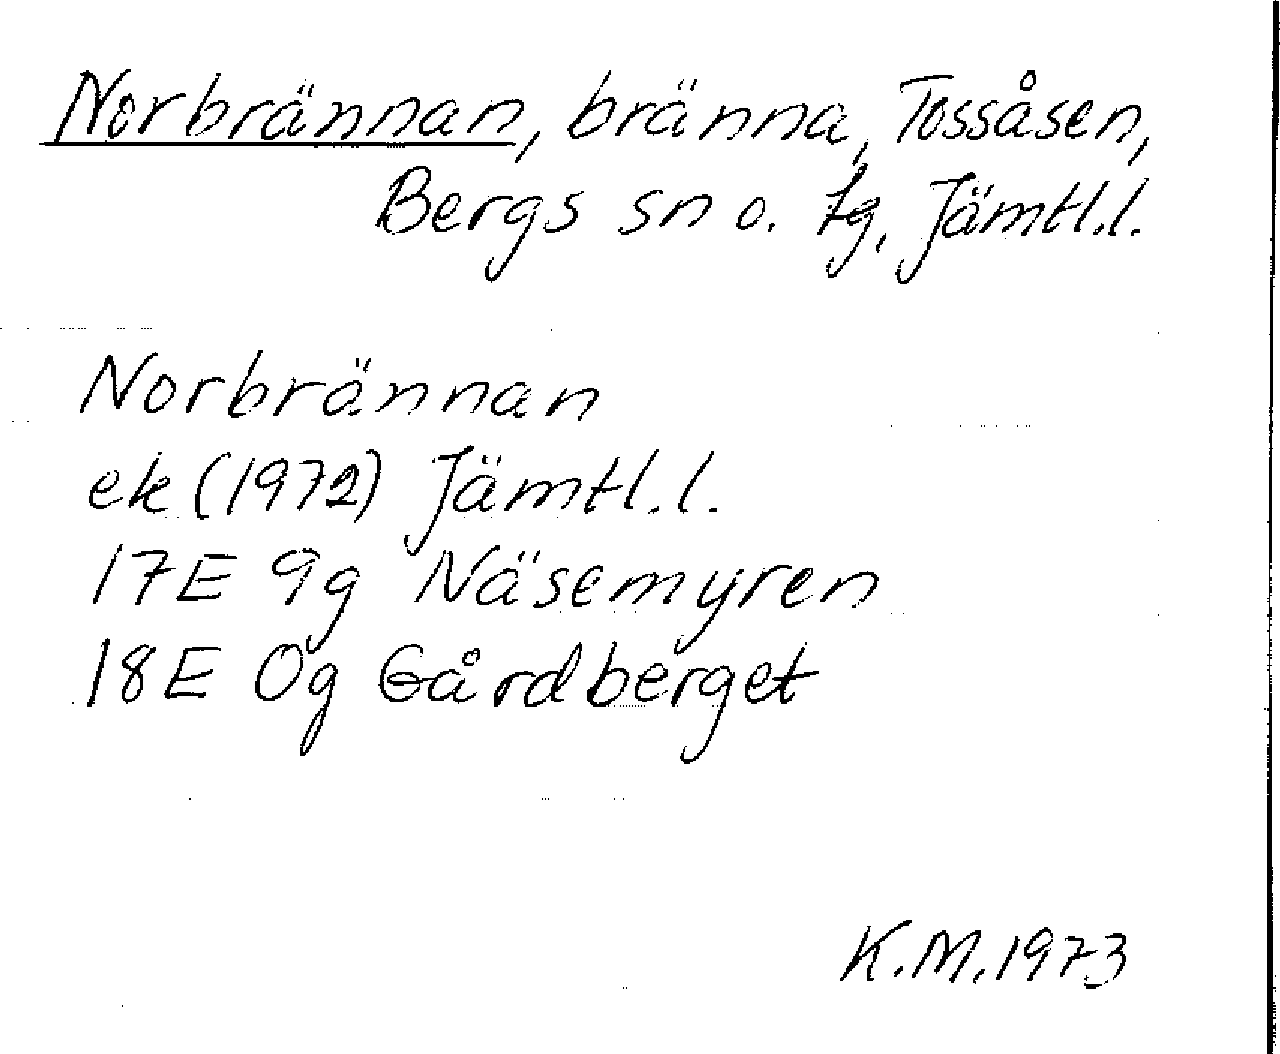 Norbrännan, bränna, Tossåsen,
Bergs sn o. tg, Jämtl.l.
Norbrännan
ek (1972) Jämtl.l.
17E 9g Näsemyren
18E 0g Gårdberget
K.M. 1973